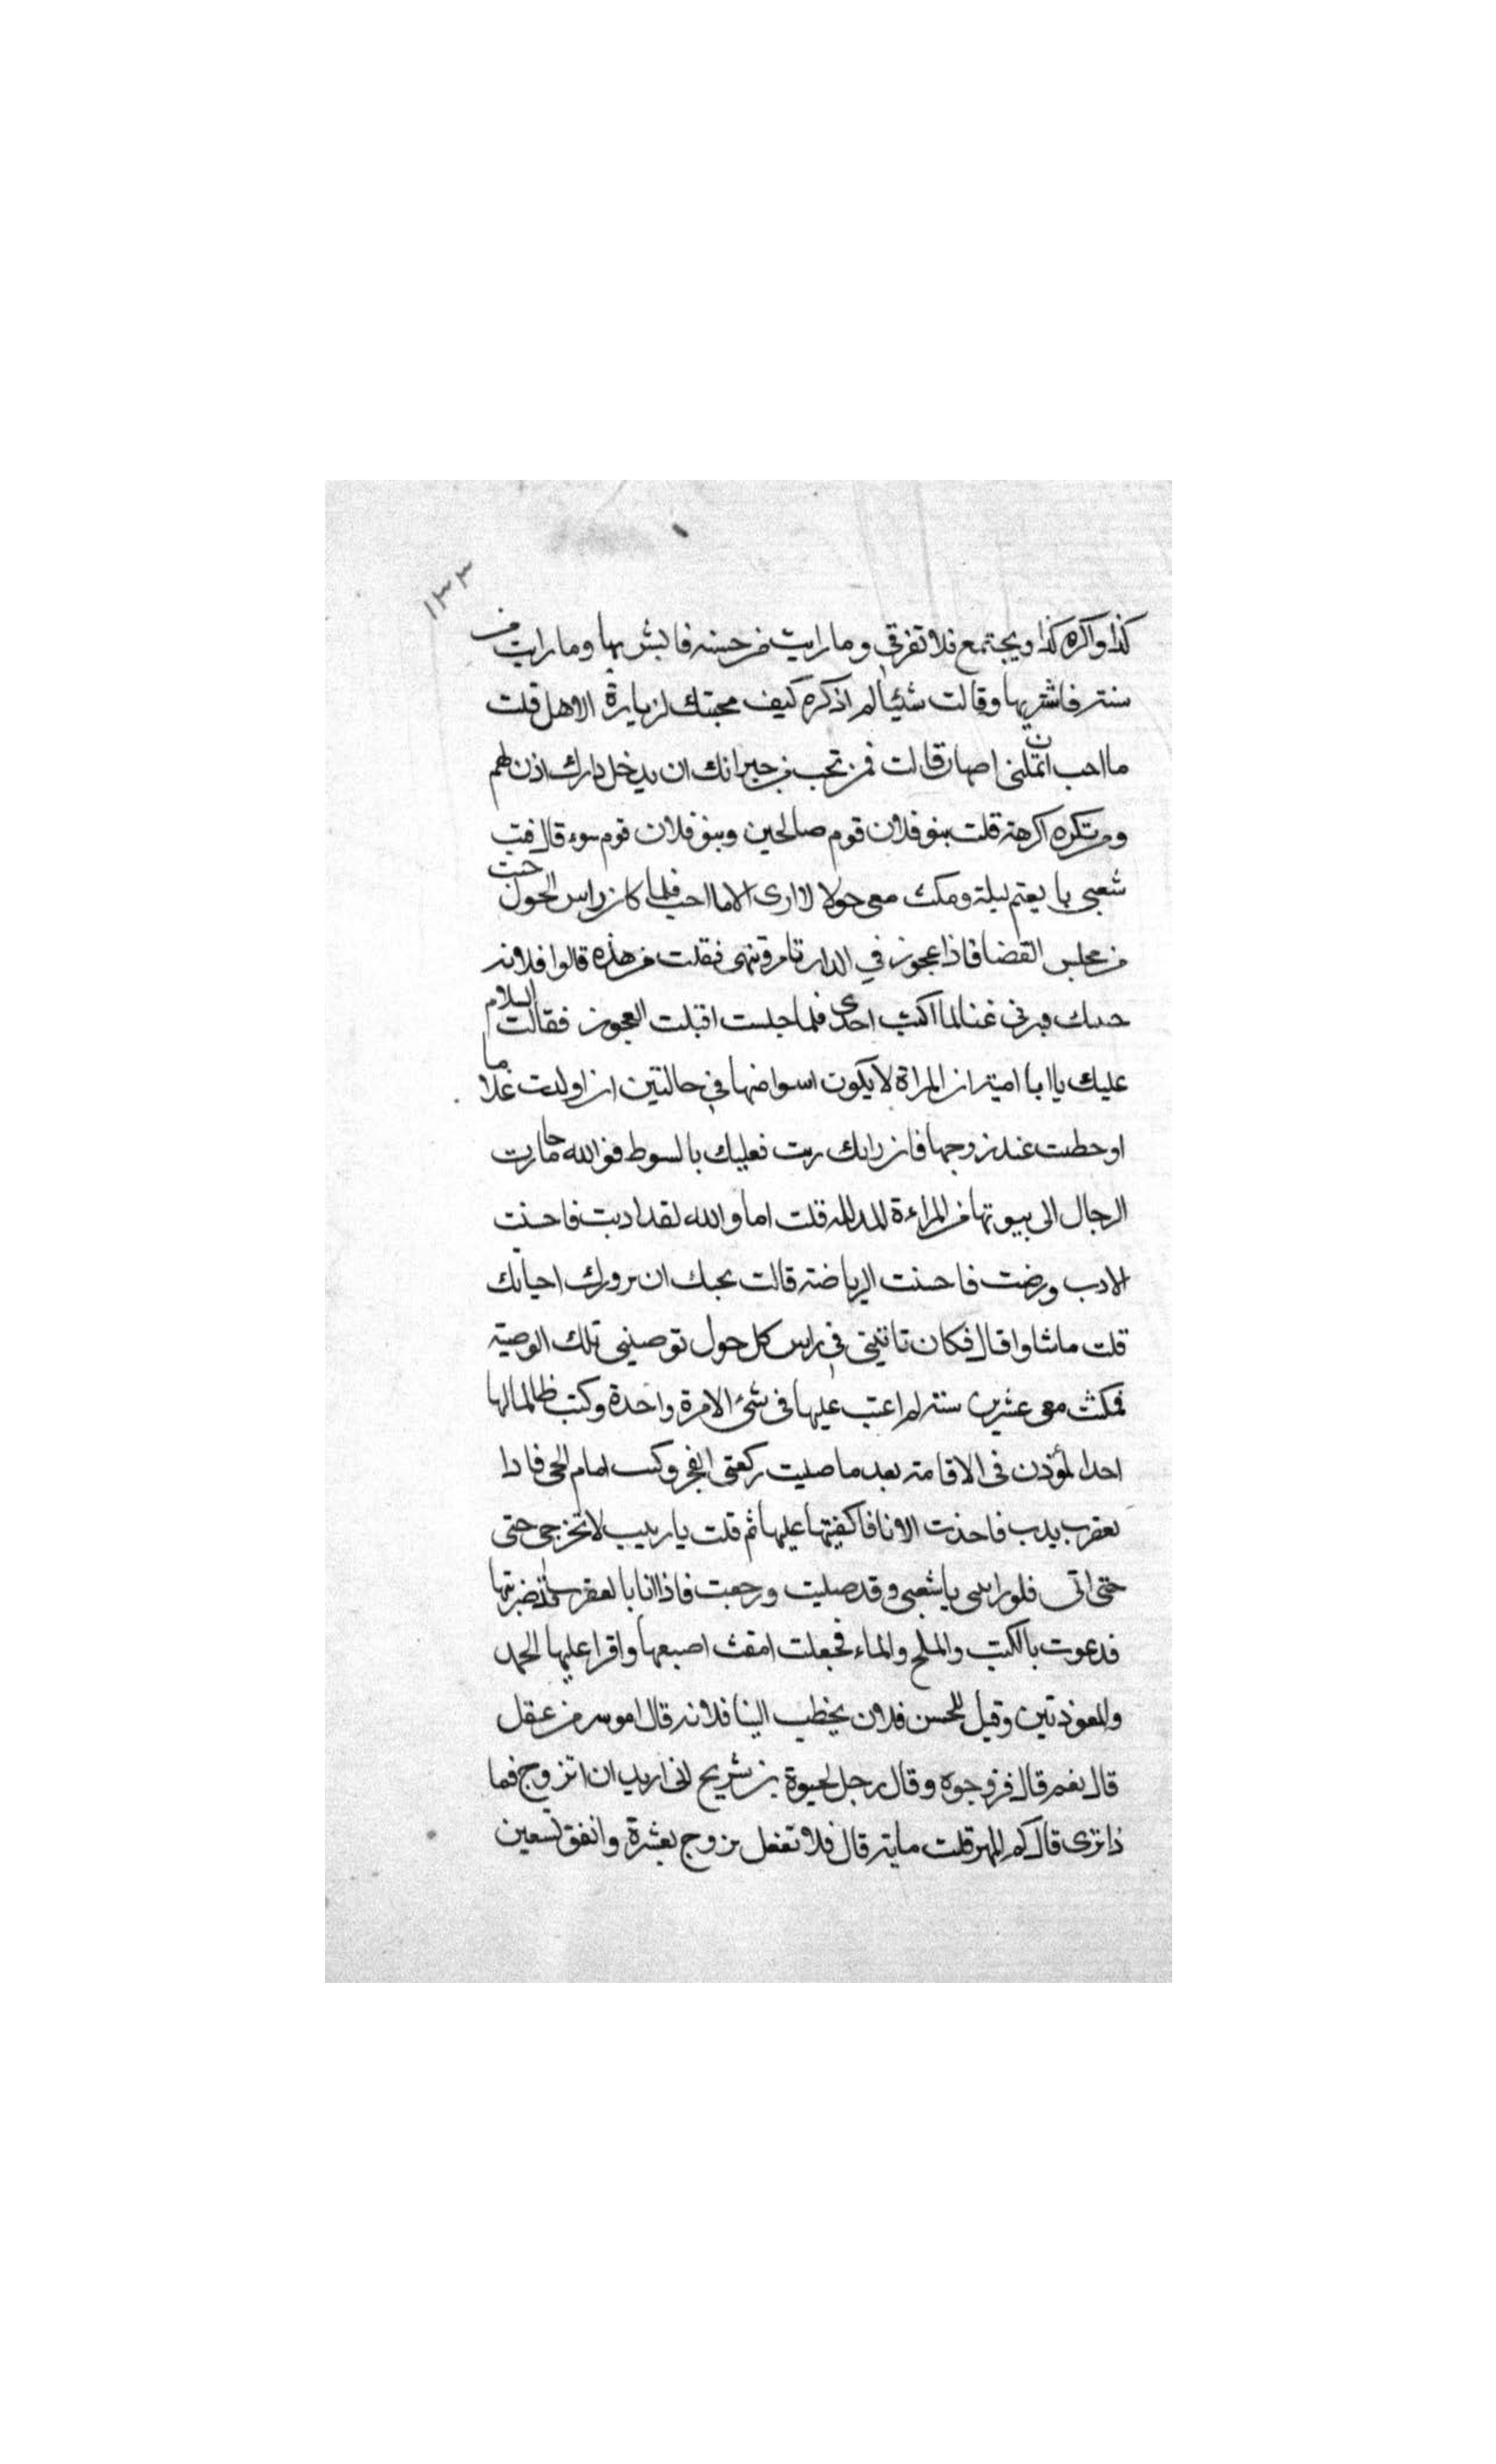 ١٣٣
كذا واكره كذا ويجتمع فلا تفرقي وما رايت من حسنه فابشر بها وما رايت من
سنة فاشريها وقالت شيئا لم اذكره كيف محبتك لزيارة الاهل قلت
ما احب ان تملني اصهار قالت فمن تحب من جيرانك ان يدخل دارك اذن لهم
ومن تكره اكرهه قلت بنو فلان قوم صالحين وبنو فلان قوم سوء قال فبت
شعبي با يعتم ليلة ومكث معي حولا لا ارى الا ما احب فلما كان راس الحول جيت
من مجلس القضا فاذا عجوز في الدار تامر وتنهى فقلت من هذه قالوا فلانه
عنا لما اكتب احدى فلما جلست اقبلت العجوز فقالت السلام
عليك يا ابا امية ان المراة لا يكون اسوا منها في حالتين اذا ولدت غلاما
او حظت عند زوجها فان رابك ريب فعليك بالسوط فوالله ما حازت
الرجال الى بيوتها من المراءة المدلله قلت اما والله لقد ادبت فاحسنت
الادب ورضت فاحسنت الرياضة قالت يحبك ان يزورك احيانك
قلت ما شاوا قال فكان تاتيني في راس كل حول توصيني تلك الوصية
فمكثت معي عشرين سنة لم اعتب عليها في شئ الا مرة واحدة وكنت ظالما لها
احد المؤذن في الاقامة بعد ما صليت ركعتي الفجر وكنت امام الحي فاذا
بعقرب يدب فاخذت الانا فاكفيتها عليها ثم قلت يا زينب لا تخرجي حتى
حتى اتى فلو رايتني يا شعبي وقد صليت ورجعت فاذا انا بالعقرب قد ضربتها
فدعوت بالكتب والملح والماء فجعلت امغث اصبعها واقرا عليها الحمد
والمعوذتين وقيل للحسن فلان يخطب الينا فلانه قال اموسر من عقل
قال نعم قال فزوجوه وقال رجل لحيوة بن شريح اني اريد ان اتزوج فما
ذا ترى قال كم المهر قلت ماية قال فلا تفعل تزوج بعشرة وانفق تسعين